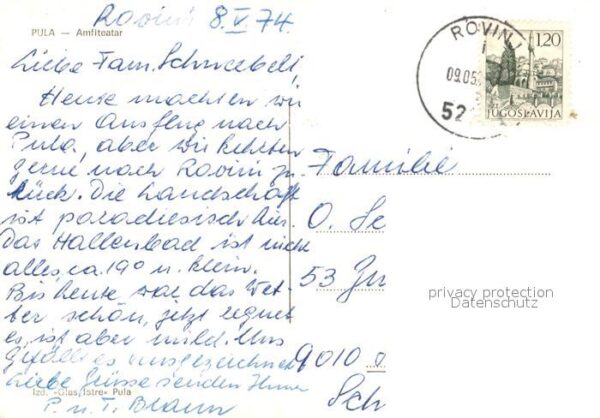 Rovinj 8.V.74.
PULA — Amfiteatar
Liebe Fam. Schneebeli,
Heute machten wir
einen Ausflug nach
Pula, aber wir kehrten
gerne nach Rovinj zu-
rück. Die Landschaft
ist paradiesisch hier.
Das Hallenbad ist nicht
alles, ca. 19° u. klein.
Bis heute war das Wet-
ter schön, jetzt regnet
es, ist aber mild. Uns
gefällt es ausgezeichnet
Liebe Grüsse senden Ihnen
P. u. T. Braun
Izd. »Glas Istre« Pula
ROVINJ
09.05
52
1,20
JUGOSLAVIJA
Familie
O. Sc
53
9010
Sch
privacy protection
Datenschutz